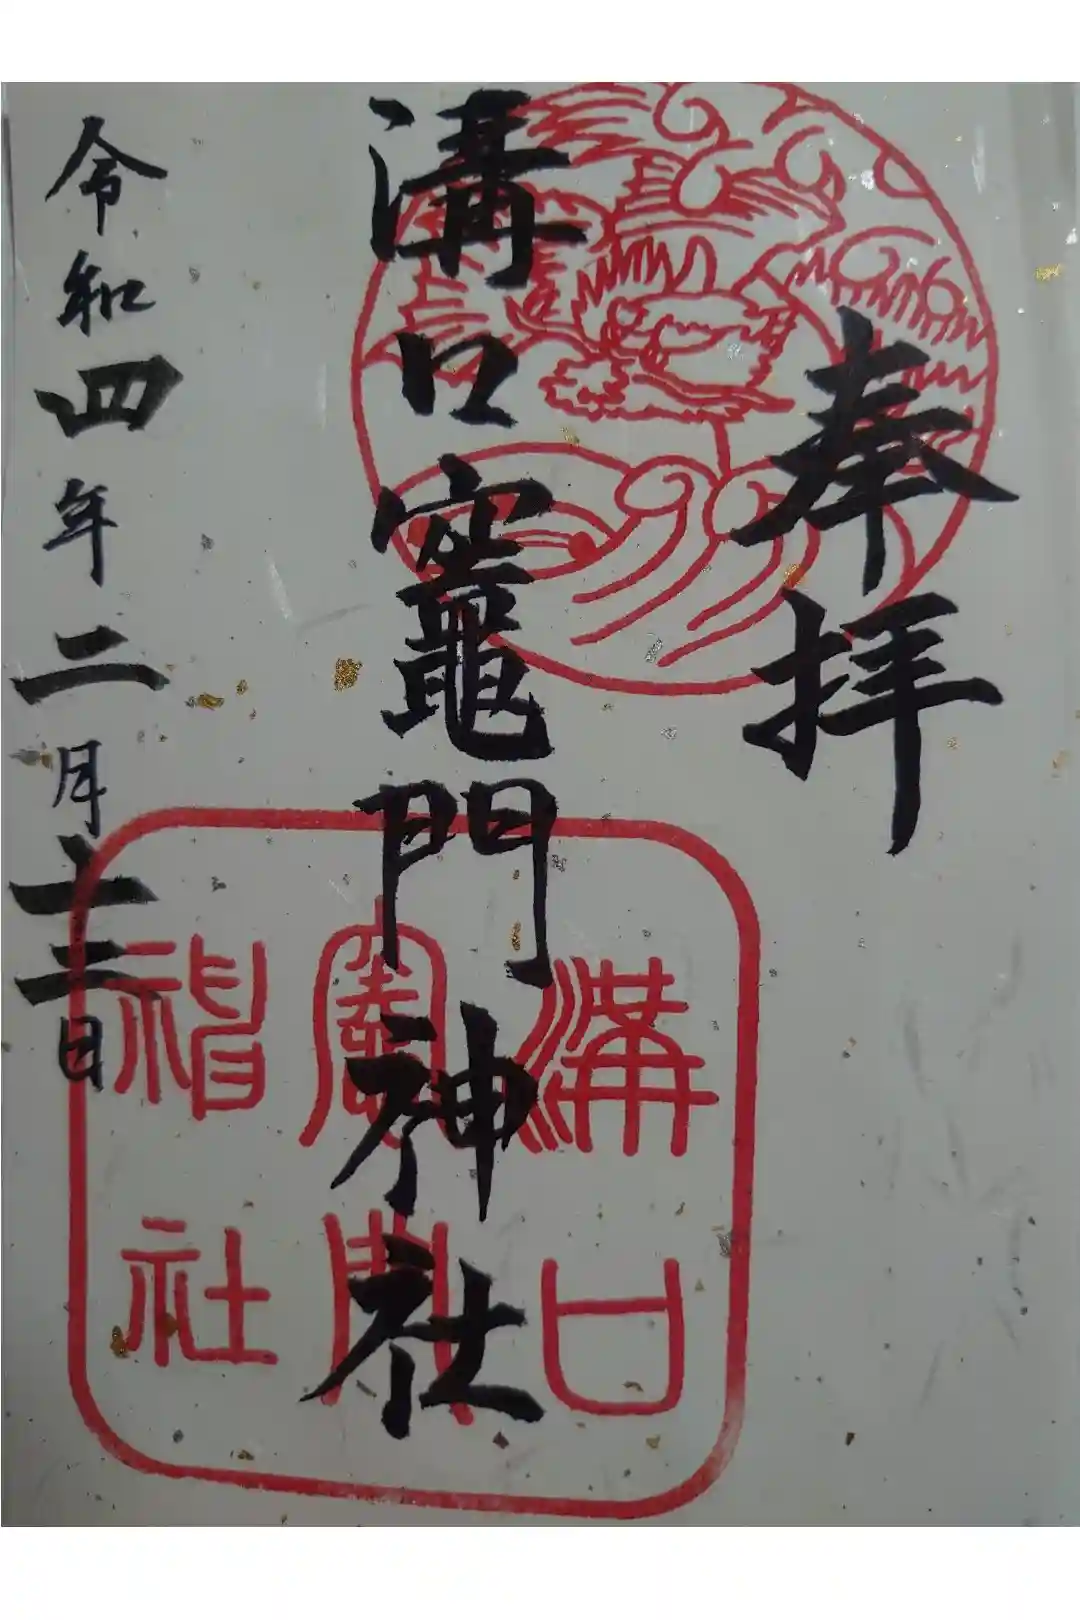 奉拝
溝口竈門神社
令和四年二月十二日
溝口
竈門
神社